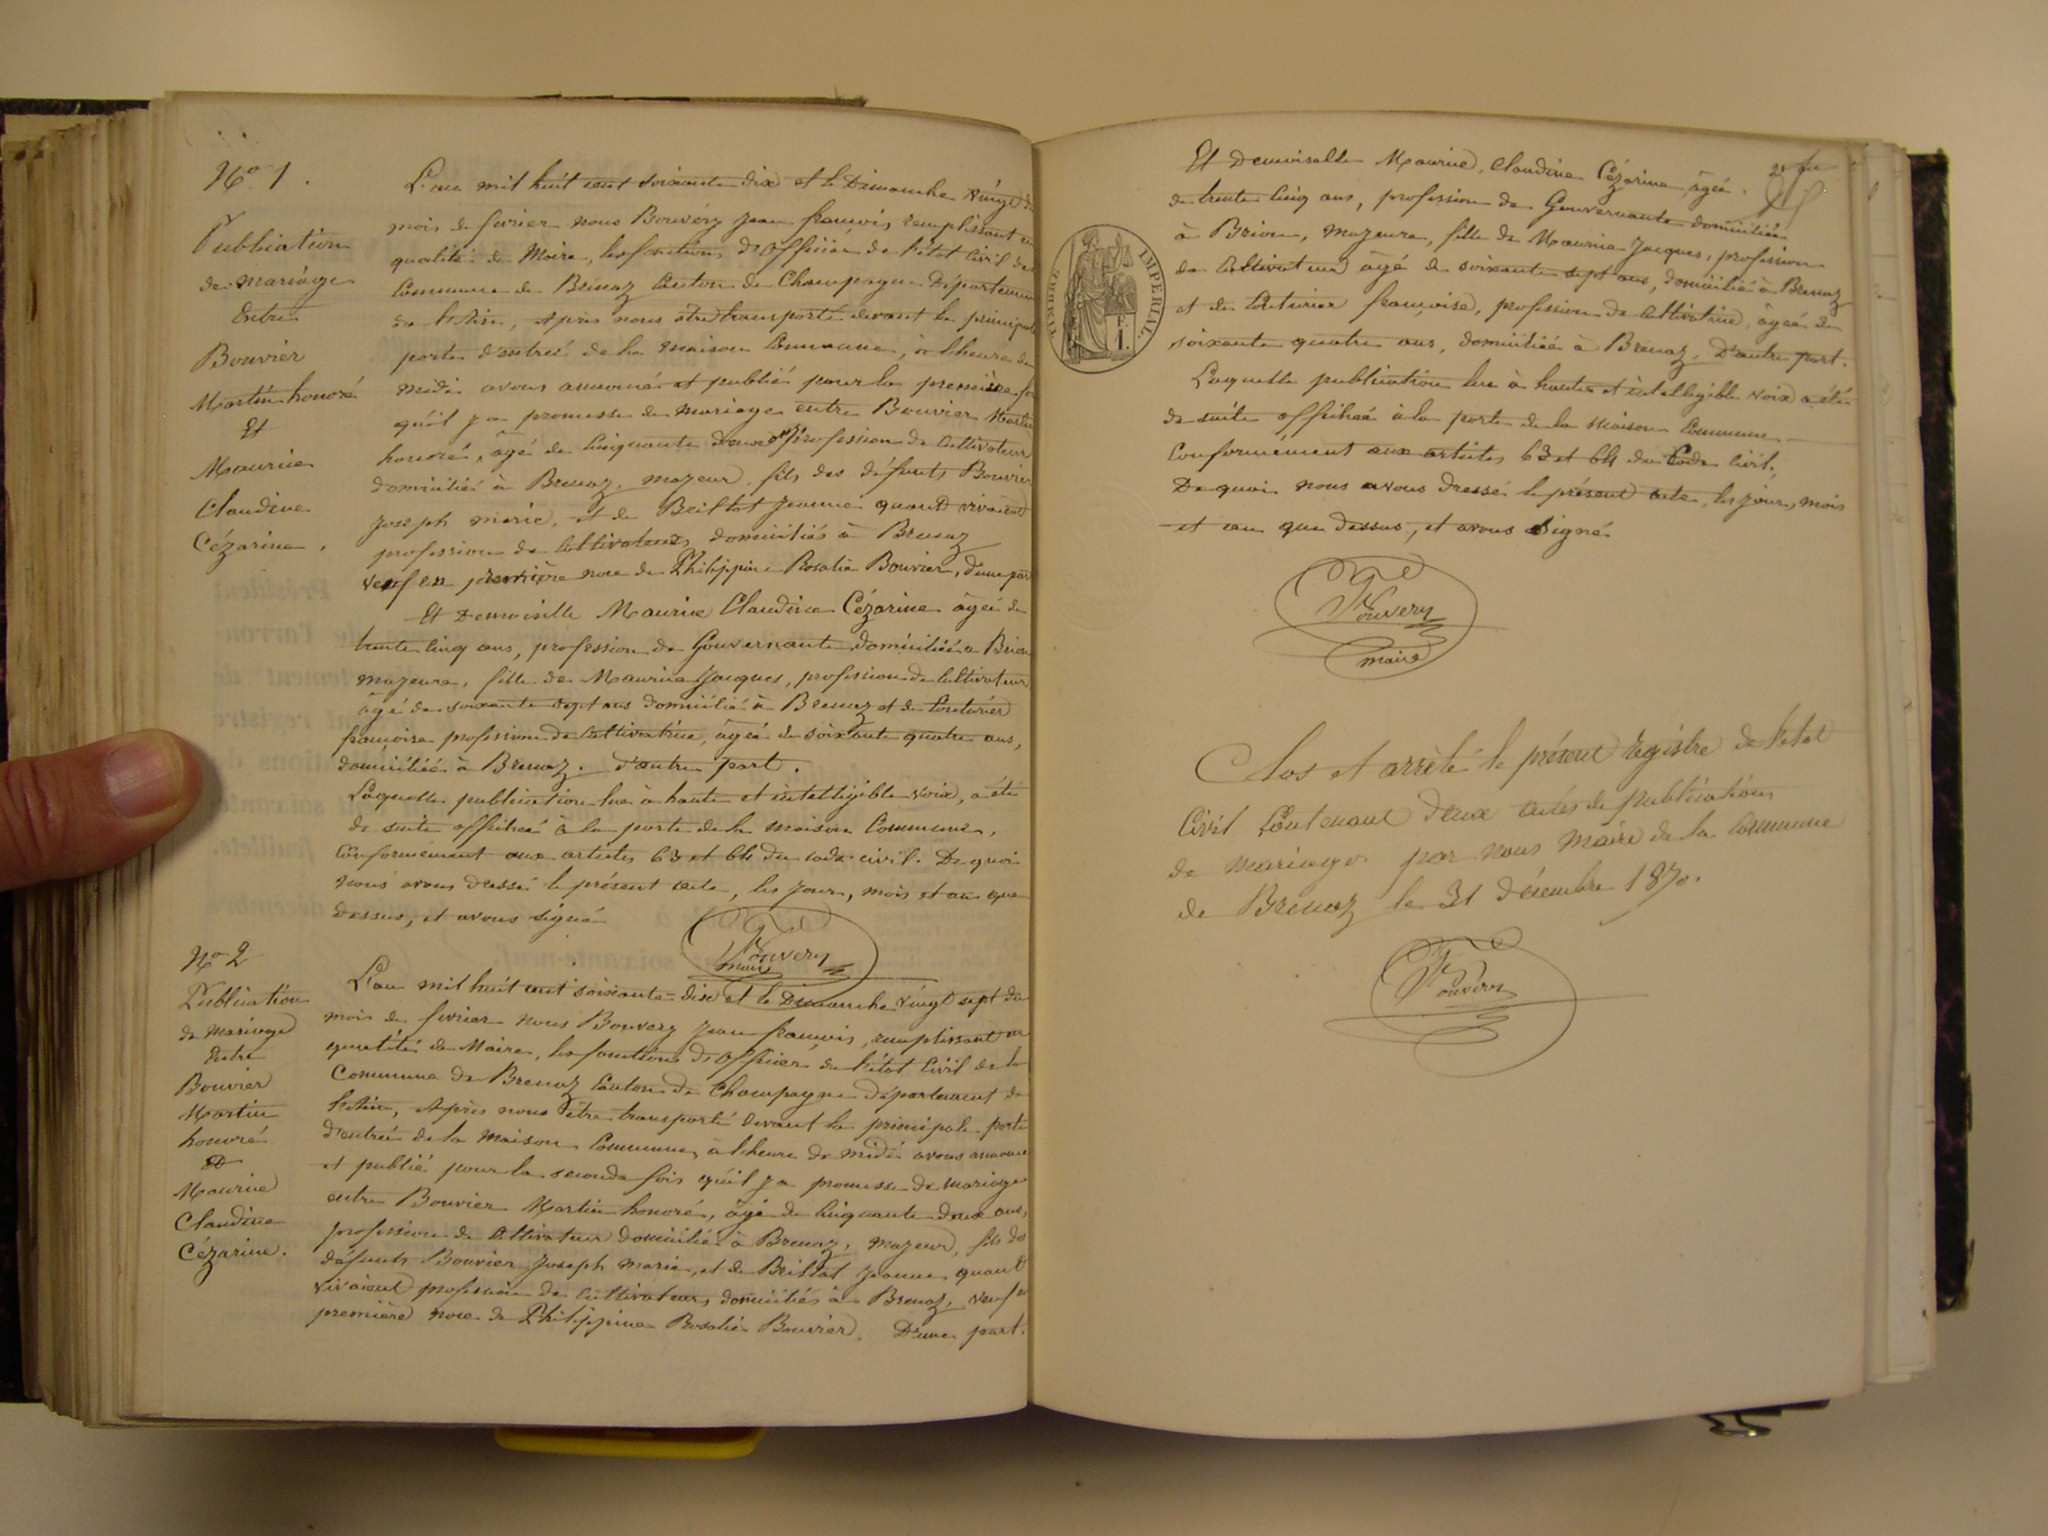 No 1.
Publication
de mariage
Entre
Bouvier
Martin honoré
Et
Maurice
Claudine
Cézarine.
L'an mil huit cent soixante dix et le Dimanche vingt du
mois de fevrier nous Bouvéry Jean françois remplissant en
qualité de Maire, les fonctions d'Officier de l'état Civil de
Commune de Brénaz Canton de Champagne Département
de l'Ain, Après nous être transporté devant la principale
porte d'entrée de la maison Commune, à l'heure de
midi avons annoncé et publié pour la première fois
qu'il y a promesse de mariage entre Bouvier Martin
honoré, âgé de Cinquante deux ans profession de Cultivateur
domicilié à Brenaz, majeur, fils des défunts Bouvier
Joseph marie, et de Brillat Jeanne quand vivaient
profession de Cultivateurs domiciliés à Brenaz
veuf en première noce de Philippine Rosalie Bouvier, d'une part
Et Demoiselle Maurice Claudine Cézarine âgée de
trente Cinq ans, profession de Gouvernante domiciliée à Brion
majeure, fille de Maurice Jacques, profession de Cultivateur
âgé de soixante sept ans domicilié à Brenaz et de Couturier
françoise profession de Cultivatrice, âgée de soixante quatre ans,
domiciliée à Brenaz. d'autre part.
Laquelle publication lue à haute et intelligible voix, a été
de suite affichée à la porte de la maison Commune,
Conformément aux articles 63 et 64 du code civil. De quoi
nous avons dressé le présent acte, les jour, mois et an que
dessus, et avons signé
Bouvery
maire
No 2
Publication
de mariage
Entre
Bouvier
Martin
honoré
Et
Maurice
Claudine
Cézarine.
L'an mil huit cent soixante-dix et le Dimanche vingt sept du
mois de fevrier nous Bouvery Jean françois, remplissant en
qualité de Maire, les fonctions d'Officier de l'état Civil de la
Commune de Brenaz Canton de Champagne département de
l'Ain, Après nous être transporté devant la principale porte
d'entrée de la Maison Commune, à l'heure de midi avons annoncé
et publié pour la seconde fois qu'il y a promesse de mariage
entre Bouvier Martin honoré, âgé de Cinquante deux ans,
profession de Cultivateur domicilié à Brenaz, majeur, fils des
défunts Bouvier Joseph marie, et de Brillat Jeanne quand
vivaient profession de Cultivateurs, domiciliés à Brenaz, veuf en
première noce de Philippine Rosalie Bouvier. D'une part.
TIMBRE IMPERIAL
1 F.
Et Demoiselle Maurice, Claudine Cézarine âgée
de trente Cinq ans, profession de Gouvernante domiciliée
à Brion, majeure, fille de Maurice Jacques, profession
de Cultivateur âgé de soixante sept ans, domicilié à Brenaz
et de Couturier françoise, profession de Cultivatrice, âgée de
soixante quatre ans, domiciliée à Brenaz. D'autre part.
Laquelle publication lue à haute et intelligible voix a été
de suite affichée à la porte de la Maison Commune
Conformément aux articles 63 et 64 du Code Civil.
De quoi nous avons dressé le présent acte, les jour, mois
et an que dessus, et avons signé
Bouvery
maire
Clos et arrêté le présent registre de l'état
Civil Contenant deux actes de publications
de mariage par nous Maire de la Commune
de Brenaz le 31 décembre 1870.
Bouvery